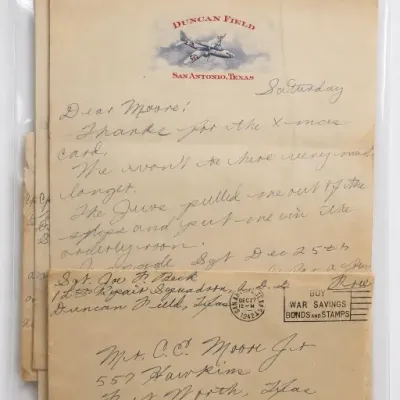 DUNCAN FIELD
SAN ANTONIO, TEXAS
Saturday
Dear Moore!
Thanks for the X-mas
card.
We won't be here very much
longer.
The pulled me out of the
shops and put me in the
orderly room.
I made Sgt Dec 25th
Sgt. Joe F.
Repair Squadron,
Duncan Field, Texas
BUY
WAR SAVINGS
BONDS AND STAMPS
Mr. C.C. Moore Jr
557 Hawkins
Ft. Worth, Texas